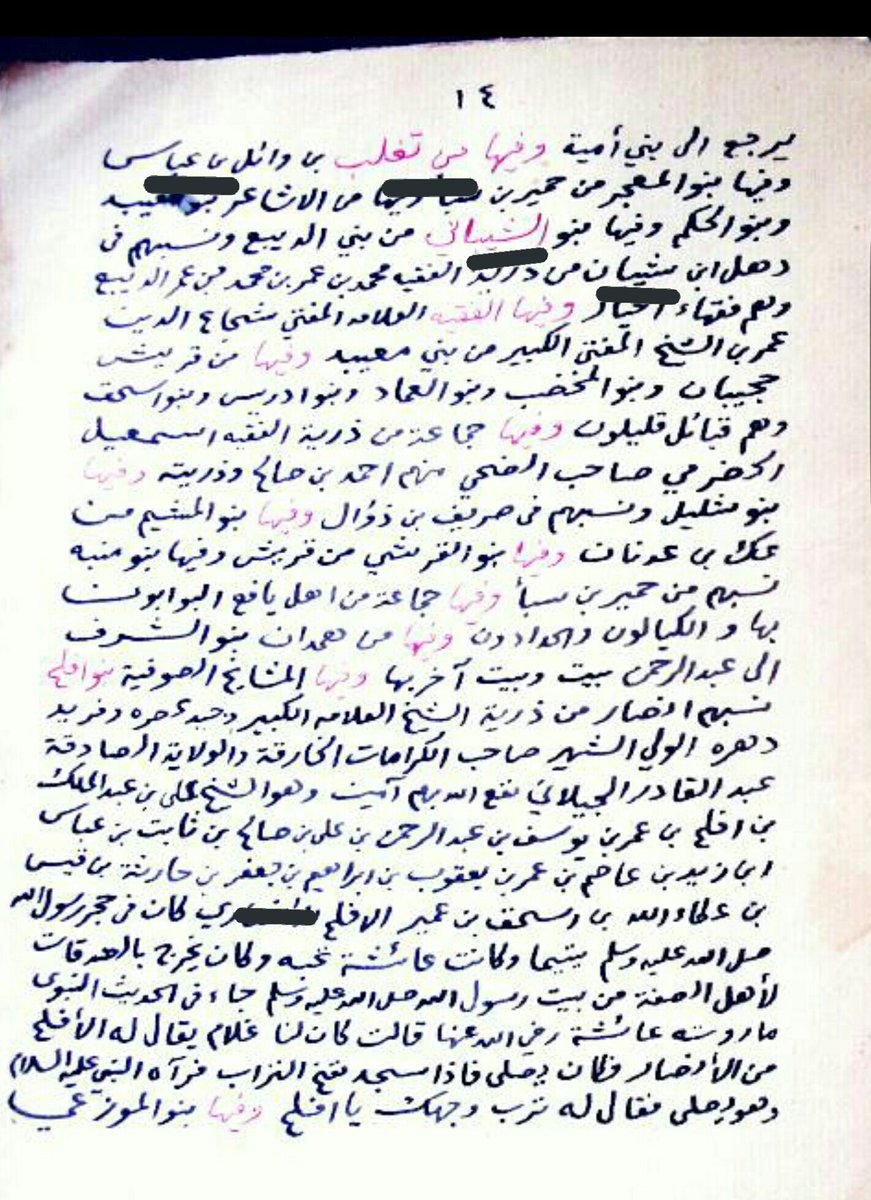 ١٤
يرجع الى بني أمية وفيها من تغلب بن وائل بن عباس
وفيها بنو المعجر من حمير بن سبأ وفيها من الاشاعر بنو معيبد
وبنو الحكم وفيها بنو الشيباني من بني الديبع ونسبهم فى
دهل ابن شيبان من ذرية الفقيه محمد بن عمر بن محمد بن عمر الديبع
وهم فقهاء اخيار وفيها الفقيه العلامه المفتي شجاع الدين
عمر بن الشيخ المفتى الكبير من بني معيبد وفيها من قريش
حجيبان وبنو المخضب وبنو العماد وبنو ادريس وبنو اسحق
وهم قبائل قليلون وفيها جماعة من ذرية الفقيه اسمعيل
الحضرمي صاحب الضحي منهم احمد بن صالح وذريته وفيها
بنو مثليل ونسبهم فى صريف بن ذؤال وفيها بنو المشيم من
عك بن عدنان وفيها بنو القرشي من قريش وفيها بنو منبه
نسبهم من حمير بن سبأ وفيها جماعة من اهل يافع البوابون
بها و الكيالون والحدادون وفيها من همدان بنو الشرف
الى عبد الرحمن بيت وبيت آخر بها وفيها المشايخ الصوفية بنو افلح
نسبهم انصار من ذرية الشيخ العلامه الكبير وحيد عصره وفريد
دهره الولي الشهير صاحب الكرامات الخارقة والولاية الصادقة
عبد القادر الجيلاني نفع الله بهم آمين وهو الشيخ على بن عبد الملك
بن افلح بن عمر بن يوسف بن عبد الرحمن بن على بن صالح بن ثابت بن عباس
ابن زيد بن عاصم بن عمر بن يعقوب بن ابراهيم بن جعفر بن حارثة بن قيس
بن عطاء الله بن اسحق بن عمير الافلح كان فى حجر رسول الله
صلى الله عليه وسلم يتيما وكانت عائشة تحبه وكان يخرج بالصدقات
لأهل الصفة من بيت رسول الله صلى الله عليه وسلم جاء فى الحديث النبوى
ما روته عائشة رضي الله عنها قالت كان لنا غلام يقال له الأفلح
من الأنصار فكان يصلى فاذا سجد نفخ التراب فرآه النبي عليه السلام
وهو يصلى فقال له ترب وجهك يا افلح وفيها بنو الموزعي